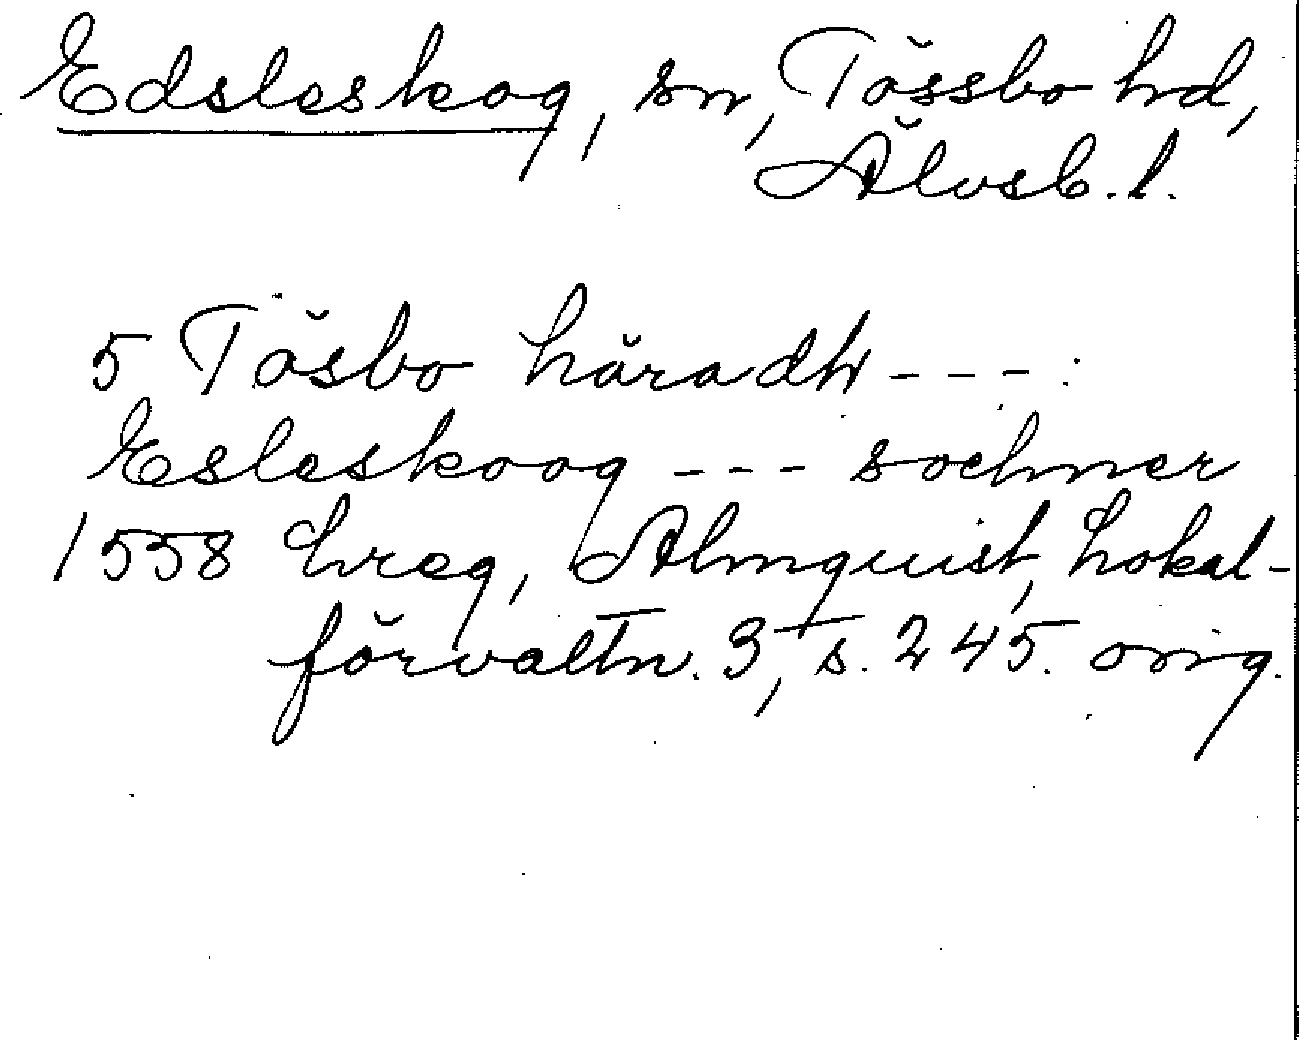 Edsleskog, sn, Tössbo hd,
Älvsb. l.
5 Tösbo häradh - - - :
Esleskoog - - - sochner
1558 Lreg, Almquist, Lokal-
förvaltn. 3, s. 245. orig.